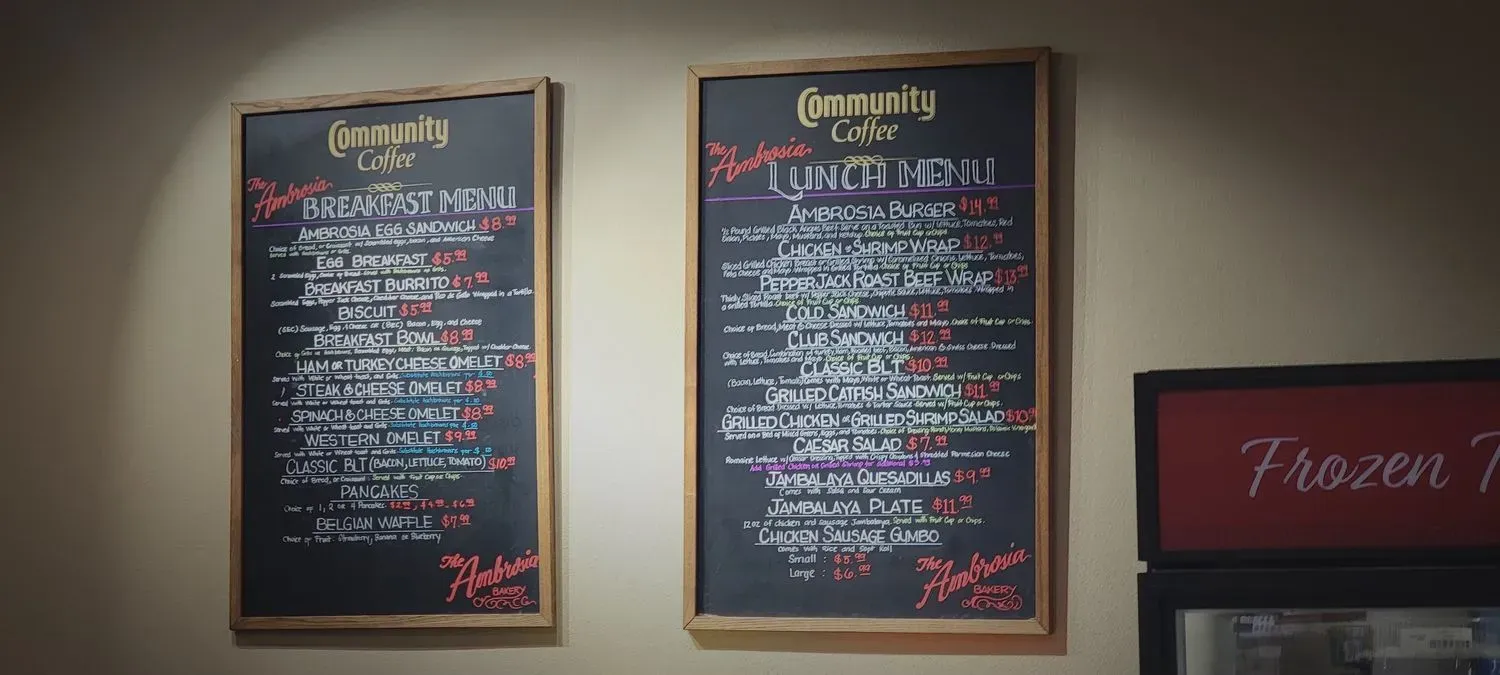 Community
Coffee
The
Ambrosia
BREAKFAST MENU
AMBROSIA EGG SANDWICH $8.99
Choice of Bread, or Croissant w/ Scrambled Eggs, Bacon, and American Cheese
Served with Hashbrowns or Grits.
EGG BREAKFAST $5.99
2 Scrambled Egg, Choice of Bread Served with Hashbrowns or Grits.
BREAKFAST BURRITO $7.99
Scrambled Eggs, Pepper Jack Cheese, Cheddar Cheese, and Pico de Gallo Wrapped in a Tortilla.
BISCUIT $5.99
(SEC) Sausage, Egg, & Cheese or (BEC) Bacon, Egg, and Cheese
BREAKFAST BOWL $8.99
Choice of Grits or Hashbrowns, Scrambled Eggs, Meat: Bacon or Sausage, Topped w/ Cheddar Cheese.
HAM OR TURKEY CHEESE OMELET $8.99
Served With White or Wheat toast, and Grits. Substitute Hashbrowns for $.50
STEAK & CHEESE OMELET $8.99
Served With White or Wheat toast and Grits. Substitute Hashbrowns for $.50
SPINACH & CHEESE OMELET $8.99
Served With White or Wheat toast and Grits. Substitute Hashbrowns for $.50
WESTERN OMELET $9.99
Served With White or Wheat toast and Grits. Substitute Hashbrowns for $.50
CLASSIC BLT (BACON, LETTUCE, TOMATO) $10.99
Choice of Bread, or Croissant. Served with Fruit Cup or Chips
PANCAKES
Choice of 1, 2 or 4 Pancakes. $2.99, $4.99, $6.99
BELGIAN WAFFLE $7.99
Choice of Fruit: Strawberry, Banana or Blueberry
The
Ambrosia
BAKERY
Community
Coffee
The
Ambrosia
LUNCH MENU
AMBROSIA BURGER $14.99
½ Pound Grilled Black Angus Beef Serve on a Toasted Bun w/ Lettuce, Tomatoes, Red
Onion, Pickles, Mayo, Mustard, and Ketchup. Choice of Fruit Cup or Chips.
CHICKEN OR SHRIMP WRAP $12.99
Sliced Grilled Chicken Breast or Grilled Shrimp w/ Caramelized Onions, Lettuce, Tomatoes,
Feta Cheese and Mayo Wrapped in Grilled Tortilla. Choice of Fruit Cup or Chips
PEPPER JACK ROAST BEEF WRAP $13.99
Thinly Sliced Roast Beef w/ Pepper Jack Cheese, Chipotle Sauce, Lettuce, Tomatoes, Wrapped in
a Grilled Tortilla. Choice of Fruit Cup or Chips.
COLD SANDWICH $11.99
Choice of Bread, Meat & Cheese Dressed w/ Lettuce, Tomatoes and Mayo. Choice of Fruit Cup or Chips.
CLUB SANDWICH $12.99
Choice of Bread, Combination of Turkey, Ham, Roasted Beef, Bacon, American & Swiss Cheese. Dressed
with Lettuce, Tomatoes and Mayo. Choice of Fruit Cup or Chips.
CLASSIC BLT $10.99
(Bacon, Lettuce, Tomato) Comes with Mayo, White or Wheat Toast. Served w/ Fruit Cup or Chips
GRILLED CATFISH SANDWICH $11.99
Choice of Bread Dressed w/ Lettuce, Tomatoes & Tartar Sauce Served w/ Fruit Cup or Chips.
GRILLED CHICKEN OR GRILLED SHRIMP SALAD $10.9
Served on a Bed of Mixed Greens, Eggs, and Tomatoes. Choice of Dressing: Ranch, Honey Mustard, Balsamic Vinaigrette
CAESAR SALAD $7.99
Romaine Lettuce w/ Caesar Dressing, Topped with Crispy Croutons & Shredded Parmesian Cheese
Add Grilled Chicken or Grilled Shrimp for additional $3.99
JAMBALAYA QUESADILLAS $9.99
Comes with Salsa and Sour Cream
JAMBALAYA PLATE $11.99
12 oz of chicken and sausage Jambalaya. Served with Fruit Cup or Chips.
CHICKEN SAUSAGE GUMBO
comes with Rice and Soft Roll
Small : $5.99
Large : $6.99
The
Ambrosia
BAKERY
Frozen